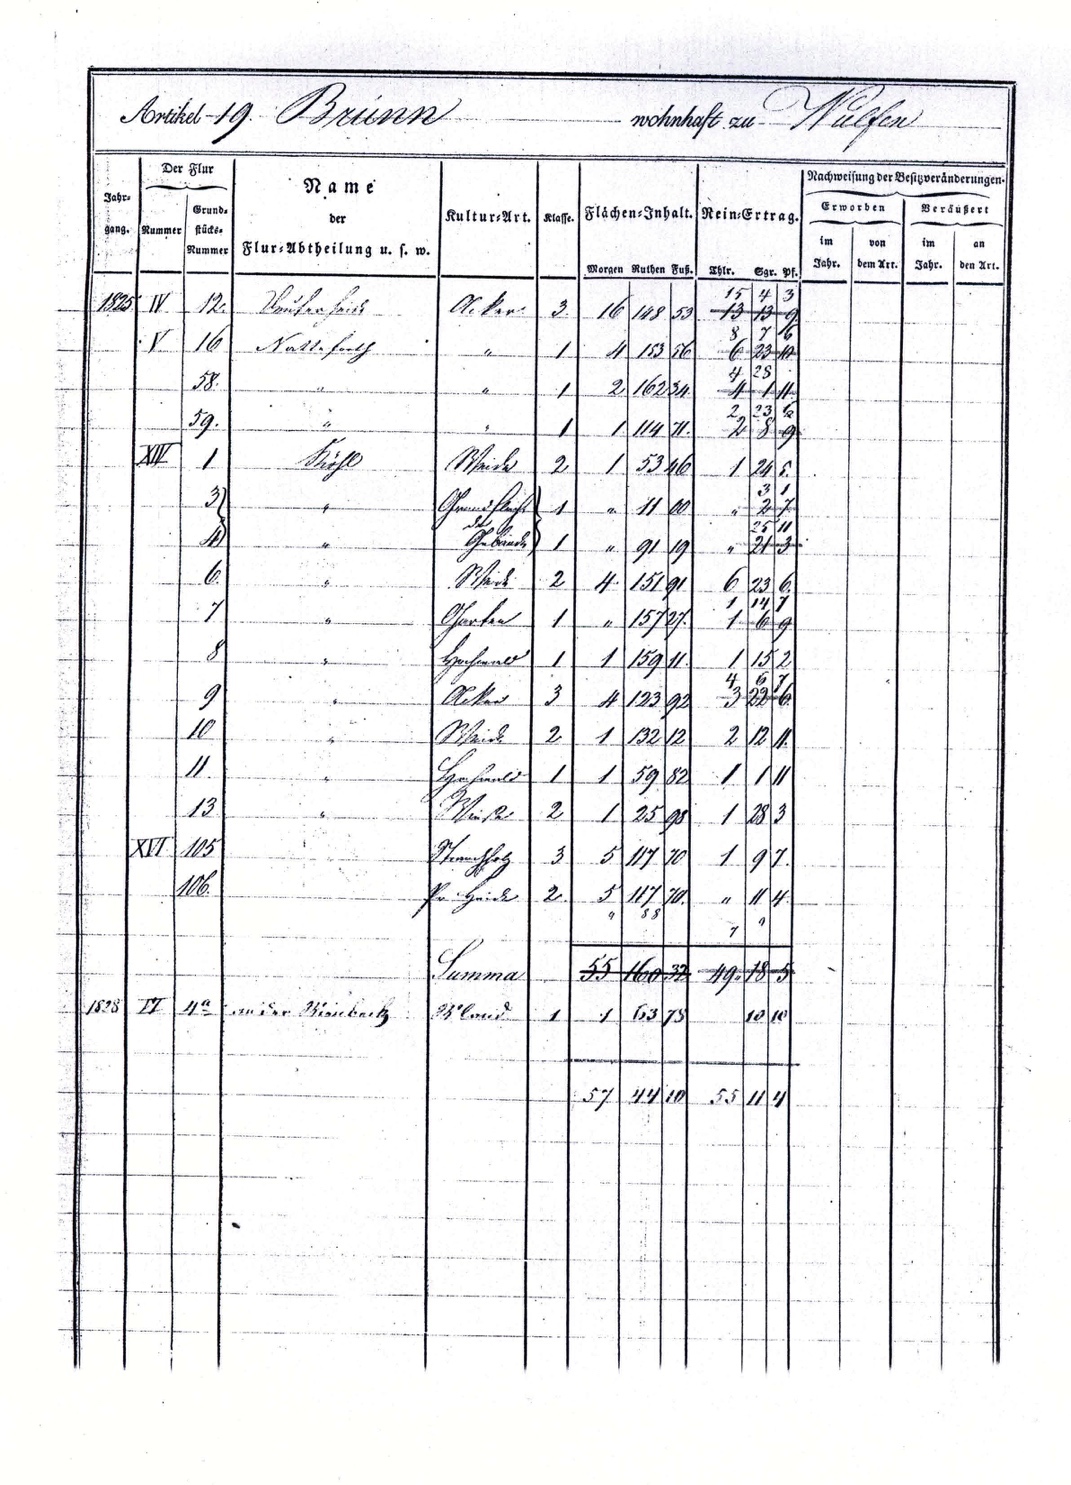 Artikel 19. Brunn wohnhaft zu Wulfen
Jahrgang. Der Flur Nummer Grundstücks-Nummer Name der Flur-Abtheilung u. s. w. Kultur-Art. Klasse. Flächen-Inhalt. Morgen Ruthen Fuß. Rein-Ertrag. Thlr. Sgr. Pf. Nachweisung der Besitzveränderungen. Erworben im Jahr. von dem Art. Veräußert im Jahr. an den Art.
15 4 3
1825 IV 12. Acker 3 16 148 53 13 13 9
8 7 6
V 16 " 1 4 153 56 6 23
4 28
58. " " 1 2 162 34. 4 1 11
2 23
59. " " 1 1 114 71. 2 8 9
XIV 1 Köhl Weide 2 1 53 46 1 24 5.
3 1
3 " Grundfläche 1 " 11 00 " 2 7
der 25 11
4 " Gebäude 1 " 91 19 " 21 3
6. " Weide 2 4. 151 91 6 23 6.
1 14 7
7 " Garten 1 " 157 27. 1 6 9
8 " Hochwald 1 1 159 11. 1 15 2
4 6 7
9 " Acker 3 4 123 92 3 22 6
10 " Weide 2 1 132 12 2 12 11.
11. " Hochwald 1 1 59 82 1 1 11
13 " Wiese 2 1 25 98 1 28 3
XVI 105 Strauchholz 3 5 117 70 1 9 7.
106. Pr. Heide 2. 5 117 70. " 11 4.
" 88
7 "
Summa 55 160 32 49 18 5
1828 4a an der Wienbeck 1 1 63 78 10 10
57 44 10 55 11 4